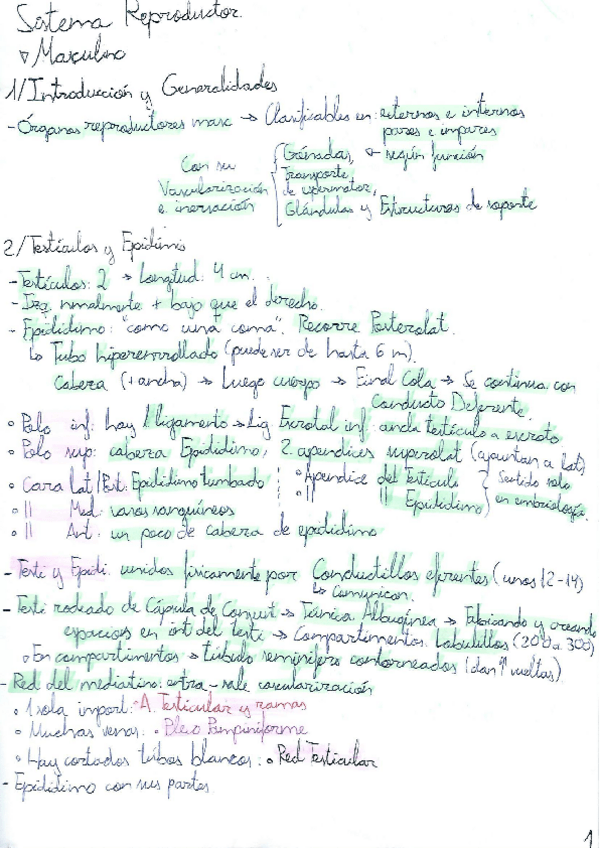 Sistema Reproductor
▽ Masculino
1/Introducción y Generalidades
- Órganos reproductores masc → Clasificables en: externos e internos
pares e impares
Con su Vascularización e inervación
{ Gónadas, ← según función
Transporte de espermatoz,
Glándulas y Estructuras de soporte
2/Testículos y Epidídimo
- Testículos: 2 → Longitud: 4 cm.
- Izq. nmalmente + bajo que el derecho.
- Epidídimo: "como una coma". Recorre Posterolat.
↳ Tubo hiperenrrollado (puede ser de hasta 6 m).
Cabeza (+ ancha) → Luego cuerpo → Final Cola → Se continua con
Conducto Deferente.
• Polo inf: hay 1 ligamento → Lig Escrotal inf: ancla testículo a escroto
• Polo sup: cabeza Epidídimo, 2 apendices superolat (apuntan a lat)
• Cara lat/Post: Epidídimo tumbado • Apendice del Testículo } Sentido solo
• || Med: vasos sanguíneos • || || Epididimo } en embriología.
• || Ant: un poco de cabeza de epididimo
- Testi y Epidi. unidos físicamente por Conductillos eferentes (unos 12-14)
↳ Comunican.
- Testi rodeado de Cápsula de Conjunt → Túnica Albugínea → Fabricando y creando
espacios en int del testi → Compartimentos. Lobulillos (200 a 300)
• En compartimentos → túbulo seminífero contorneados (dan ↑ vueltas).
- Red del mediastino: entra-sale vascularización
• 1 sola import: A. Testicular y ramas
• Muchas venas: • Plexo Pampiniforme
• Hay cortados tubos blancos: • Red Testicular
- Epidídimo con sus partes
1